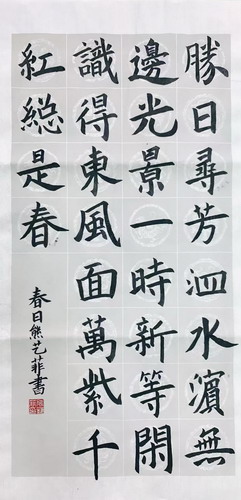 勝日尋芳泗水濱無
邊光景一時新等閑
識得東風面萬紫千
紅緫是春
春日熊艺菲書